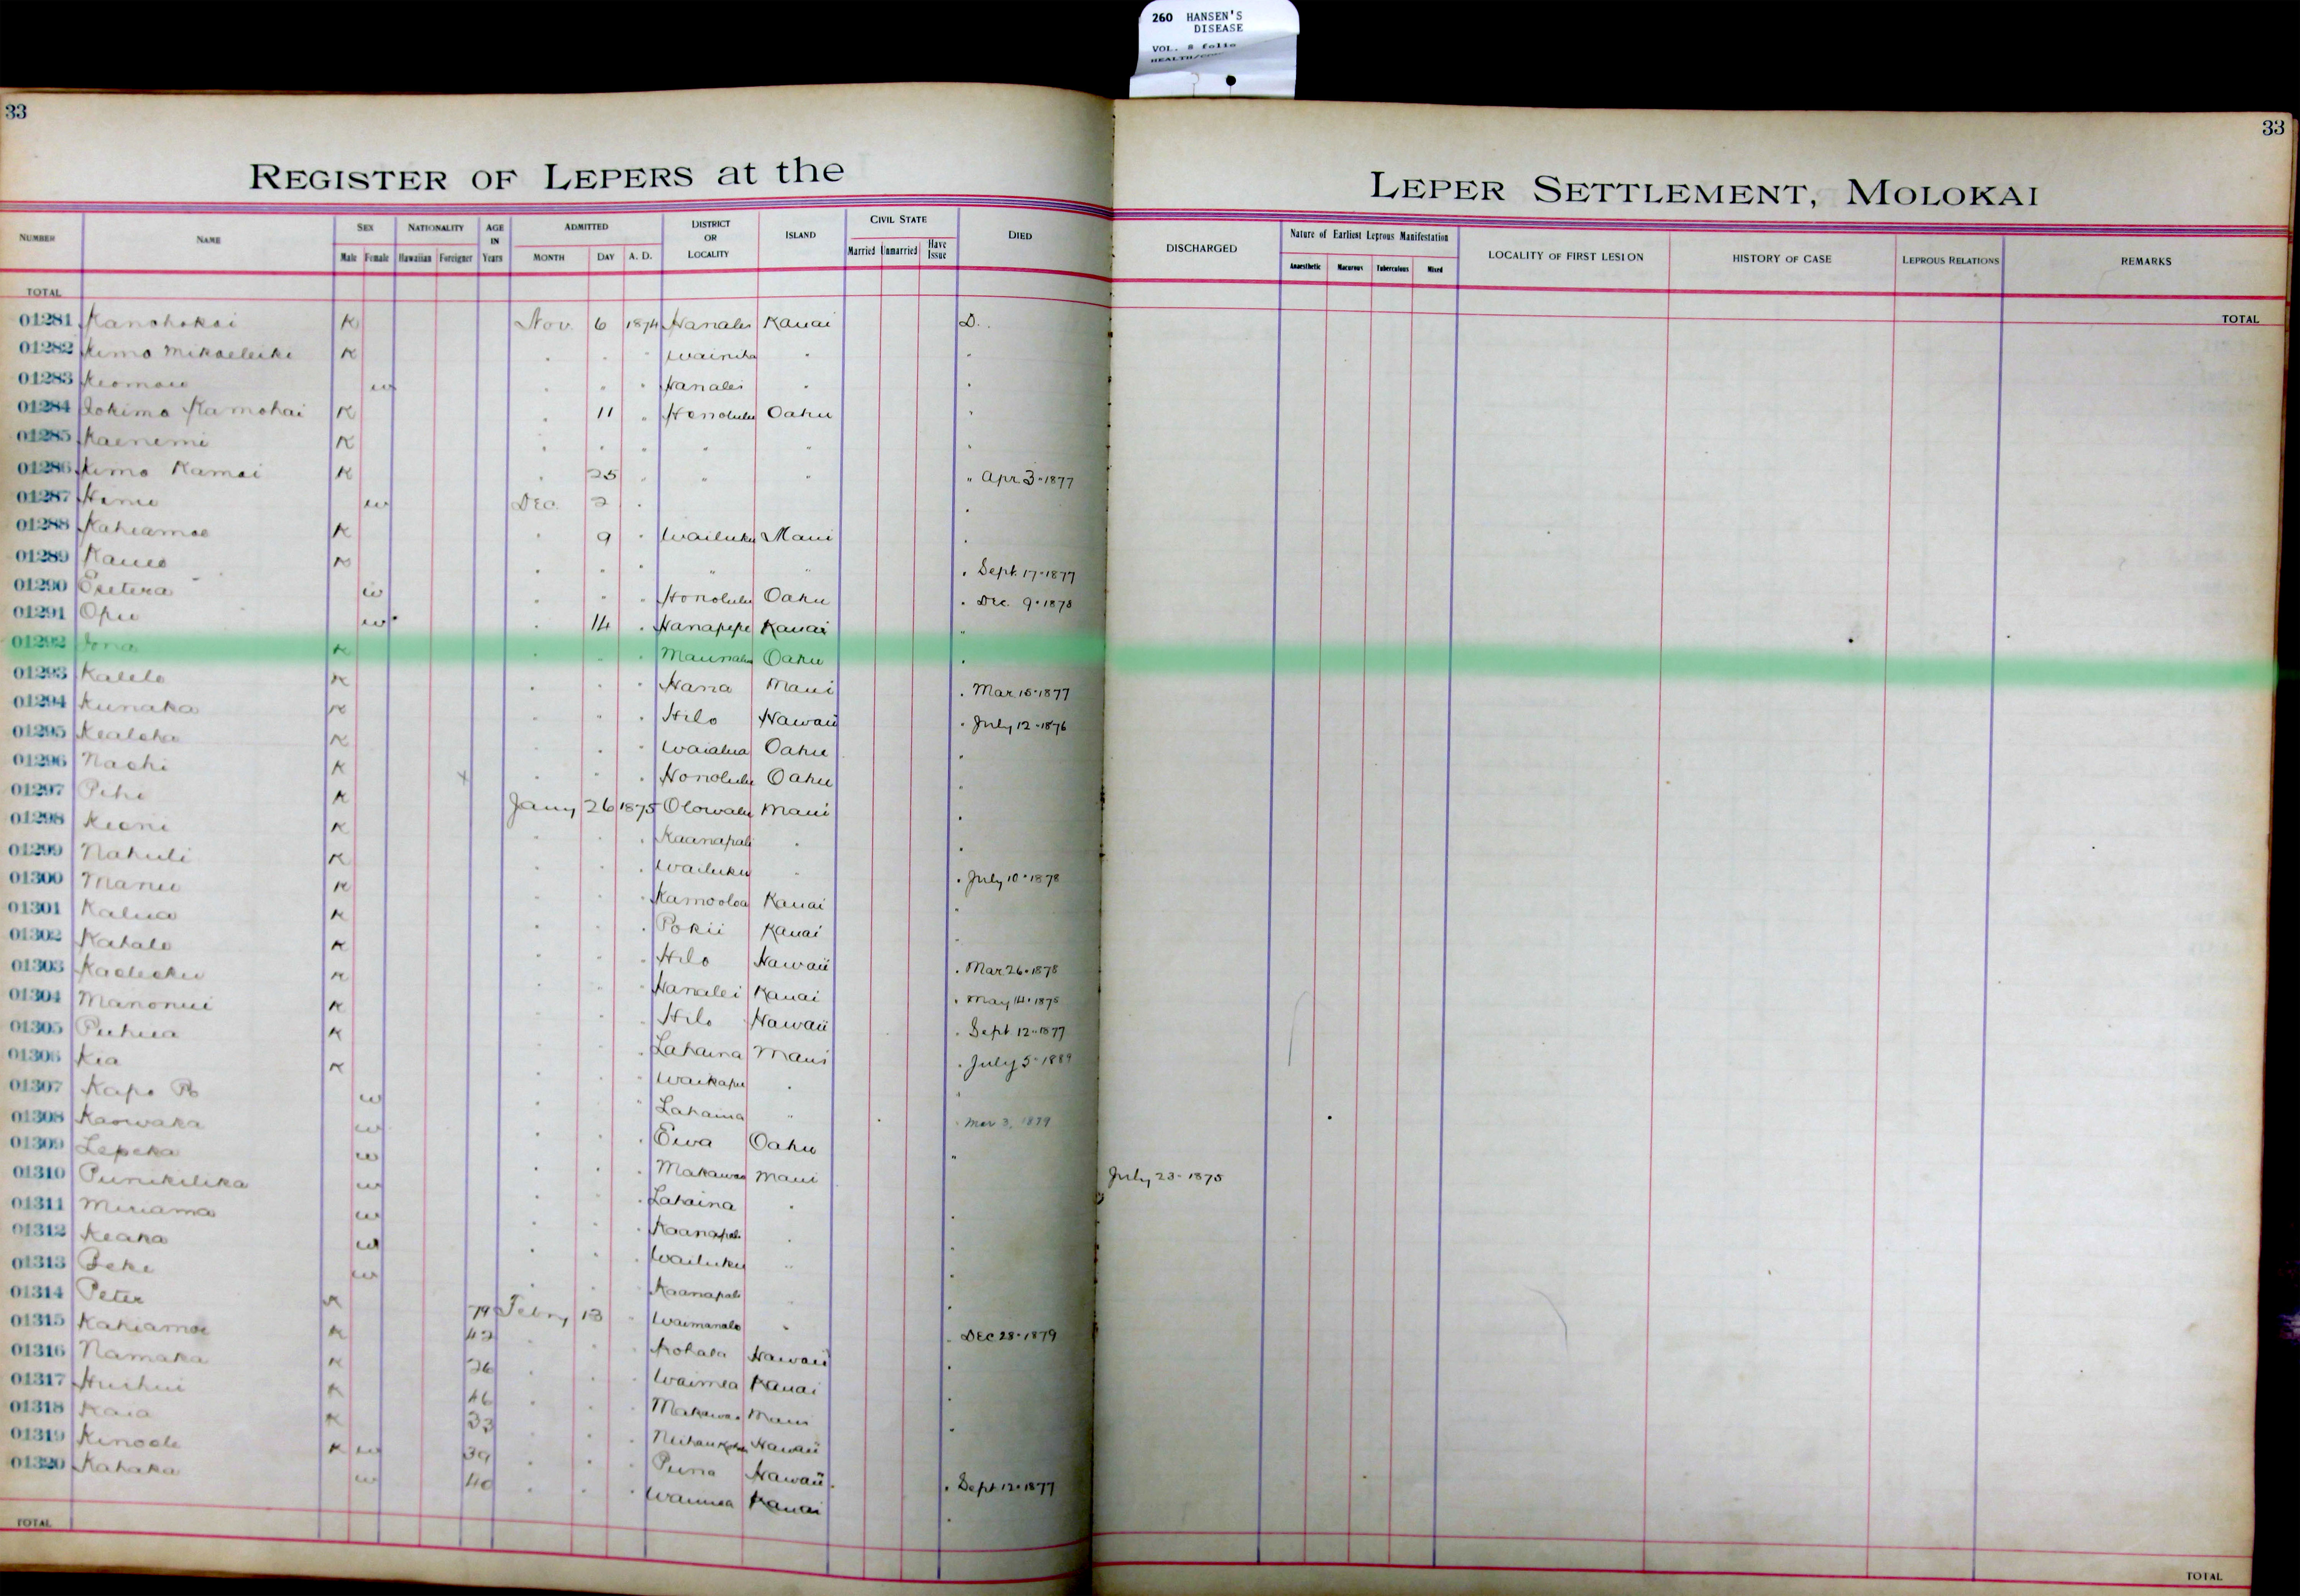 260 HANSEN'S
DISEASE
VOL. 8 folio
33
33
REGISTER OF LEPERS at the LEPER SETTLEMENT, MOLOKAI
NUMBER NAME SEX NATIONALITY AGE IN Years ADMITTED DISTRICT OR LOCALITY ISLAND CIVIL STATE DIED DISCHARGED Nature of Earliest Leprous Manifestation LOCALITY OF FIRST LESION HISTORY OF CASE LEPROUS RELATIONS REMARKS
Male Female Hawaiian Foreigner MONTH DAY A. D. Married Unmarried Have Issue Anaesthetic Macurous Tuberculous Mixed
TOTAL TOTAL
01281 Kanohokai K Nov. 6 1874 Hanalei Kauai D.
01282 Kimo Mikaeleiki K " " " Wainiha " "
01283 Keomaie w " " " Hanalei " "
01284 Iokimo Kamohai K " 11 " Honolulu Oahu "
01285 Kaenemi K " " " " " "
01286 Kimo Kamai K " 25 " " " " Apr 3-1877
01287 w Dec 2 " "
01288 Kahiamoe K " 9 " Wailuku Maui "
01289 Kaueo K " " " " " " Sept. 17-1877
01290 w " " " Honolulu Oahu " Dec. 9-1878
01291 Opu w " 14 " Hanapepe Kauai "
01292 Iona K " " " Maunalua Oahu "
01293 Kalelo K " " " Hana Maui " Mar 15-1877
01294 Kunaka K " " " Hilo Hawaii " July 12-1876
01295 Kealoha K " " " Waialua Oahu "
01296 Naohi K x " " " Honolulu Oahu "
01297 Pihi K Jany 26 1875 Olowalu Maui "
01298 Keoni K " " " Kaanapali " "
01299 Nahuli K " " " Wailuku " " July 10-1878
01300 Manu K " " " Kamooloa Kauai "
01301 Kalua K " " " Pokii Kauai "
01302 Kahalo K " " " Hilo Hawaii " Mar 26-1878
01303 K " " " Hanalei Kauai " May 14-1875
01304 Manonui K " " " Hilo Hawaii " Sept 12-1877
01305 Puhua K " " " Lahaina Maui " July 5-1889
01306 Kia K " " " Waikapu " "
01307 Kapo Po w " " " Lahaina " " Mar 3, 1879
01308 Kaowaka w " " " Ewa Oahu "
01309 Lepeka w " " " Makawao Maui July 23-1875
01310 Punikilika w " " " Lahaina " "
01311 Miriama w " " " Kaanapali " "
01312 Keaka w " " " Wailuku " "
01313 Beke w " " " Kaanapali " "
01314 Peter K 79 Febry 13 " Waimanalo " " Dec 28-1879
01315 Kahiamoe K 42 " " " Kohala Hawaii "
01316 Namaka K 26 " " " Waimea Kauai "
01317 Huihui K 46 " " " Makawao Maui "
01318 Kaia K 33 " " " Hawaii
01319 Kinoole K w 39 " " " Puna Hawaii " Sept 12-1877
01320 Kahaka w 40 " " " Waimea Kauai "
TOTAL TOTAL